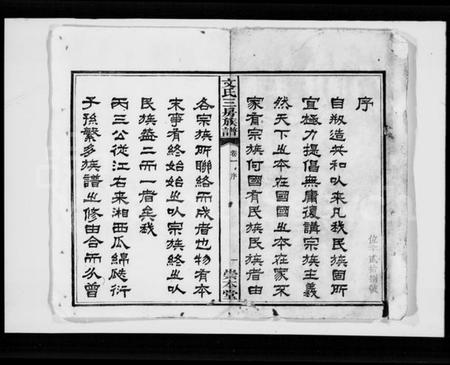 序
自叛造共和以来凡我民族固所
宜極力提倡無庸復講宗族主義
然天下之本在國國之本在家不
家有宗族何國有民族民族者由
文氏三房族譜
卷一 序
一
崇本堂
各宗族所聯絡而成者也物有本
末事有終始始之以宗族終之以
民族蓋二而一者矣我
丙三公從江右来湘西瓜綿瓞衍
子孫繁多族譜之修由合而分曾